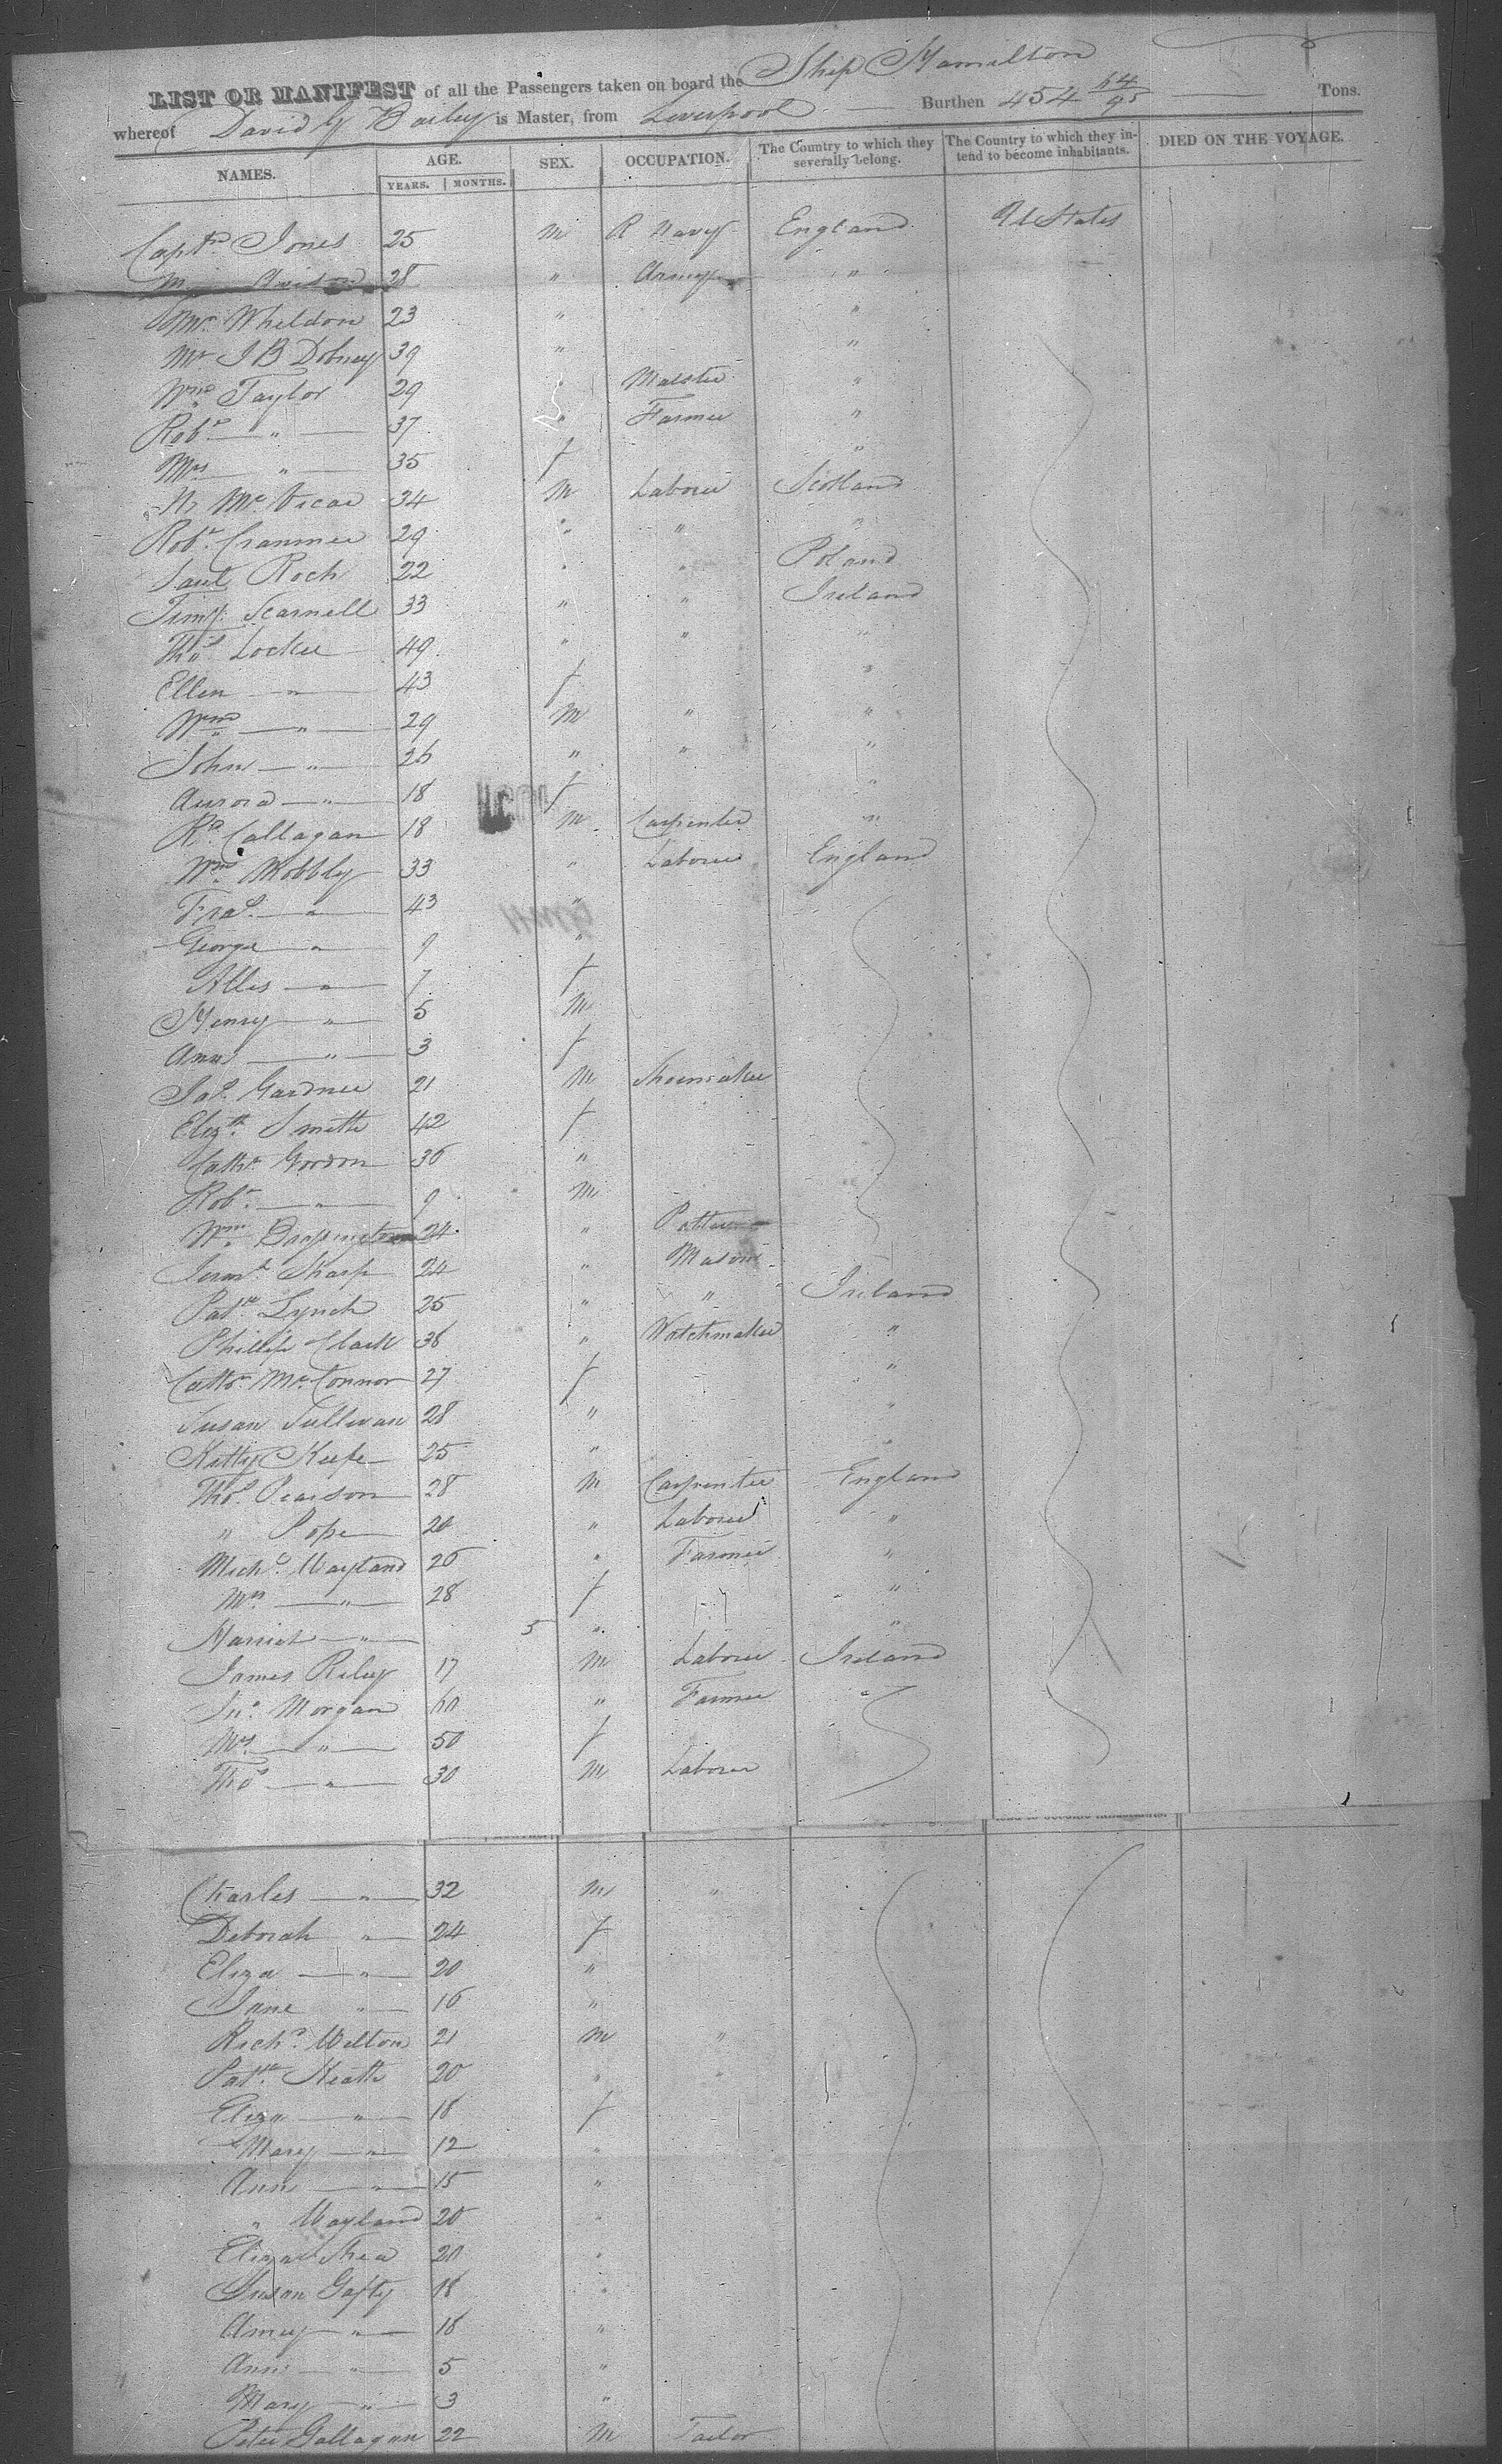 LIST OR MANIFEST of all the Passengers taken on board the Ship Hamilton
whereof David G Bailey is Master, from Liverpool Burthen 454 64/95 Tons.
NAMES. AGE. YEARS. MONTHS. SEX. OCCUPATION. The Country to which they severally belong. The Country to which they intend to become inhabitants. DIED ON THE VOYAGE.
Captn Jones 25 m R Navy England U States
28 " Army "
Wheldon 23 " "
Mr J B Dobney 39 " "
Wm Taylor 29 " "
Robt " 37 " Farmer "
Mrs " 35 f "
34 M Laborer Scotland
Robt Cranmer 29 " " "
Roch 22 " " Poland
Timy Scarnell 33 " " Ireland
Thos Locker 49 " " "
Ellen " 43 f "
Wm " 29 M " "
John " 26 " " "
Aurora " 18 f "
Rd Callagan 18 M Carpenter "
Wm Mobbly 33 " Laborer England
Fras " 43 "
George " 9 "
Alles " 7 f
Henry " 5 M
Ann " 3 f
Jas Gardner 21 M Shoemaker
Elizth Smith 42 f
Cathe Gordon 36 "
Robt " 9 M
Wm 24 " Potter
Sharp 24 " Mason
Patk Lynch 25 " " Ireland
Phillip Clark 36 " Watchmaker "
Cathe Mc Connor 27 f "
Susan Sullivan 28 " "
Kitty Keefe 25 " "
Thos Pearson 28 M Carpenter England
" Pope 20 " Laborer "
Michl Wayland 26 " Farmer "
Mrs " 28 f "
Harriet " 5 " "
James Riley 17 M Laborer Ireland
Jno Morgan 60 " Farmer "
Mrs " 50 f
Thos " 30 M Laborer
Charles " 32 M "
Deborah " 24 f
Eliza " 20 "
Jane " 16 "
Richd Welton 21 M "
Patk Heath 20 " "
Eliza " 18 f
Mary " 12 "
Ann " 15 "
" Wayland 20 "
Eliza Shea 20 "
Susan Gafty 18 "
Amey " 18 "
Ann " 5 "
Mary " 3 "
Peter Gallagan 22 M Tailor